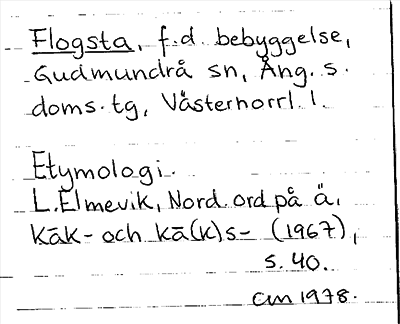 Flogsta, f.d. bebyggelse,
Gudmundrå sn, Ång. s.
doms. tg, Västernorrl. l.
Etymologi.
L. Elmevik, Nord. ord på ä.
kāk- och kā(k)s- (1967),
s. 40.
am 1978.